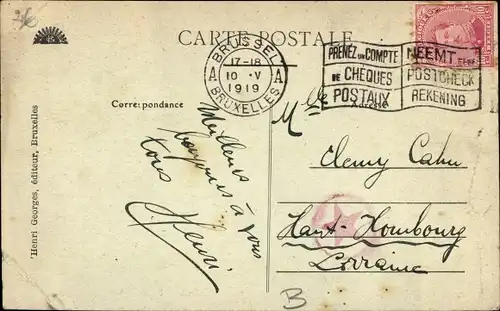 CARTE POSTALE
BRUSSEL
17-18
A 10 · V A
1919
BRUXELLES
PRENEZ UN COMPTE
DE CHÈQUES
POSTAUX
NEEMT EENE
POSTCHECK
REKENING
Correspondance
Adresse
Meilleurs
à vous
tous
Henri
Mlle
Cahn
Haut-Hombourg
Lorraine
B
Henri Georges, éditeur, Bruxelles